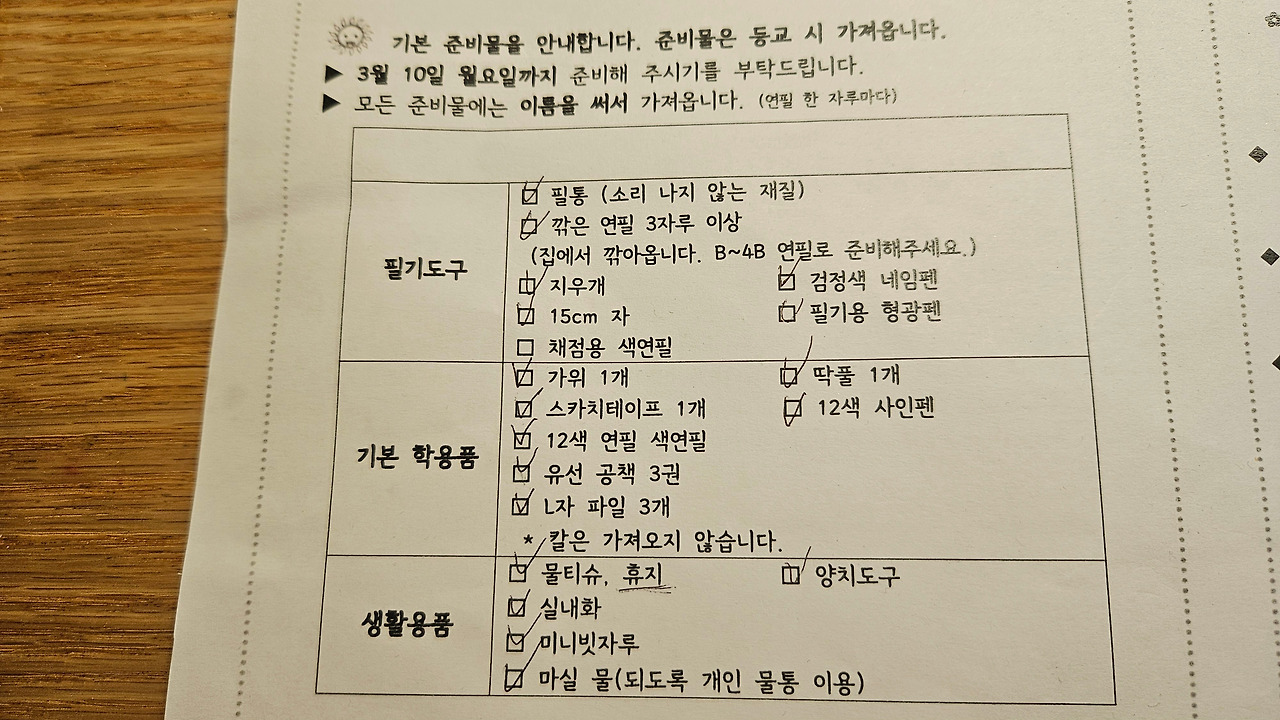 기본 준비물을 안내합니다. 준비물은 등교 시 가져옵니다.
▶ 3월 10일 월요일까지 준비해 주시기를 부탁드립니다.
▶ 모든 준비물에는 이름을 써서 가져옵니다. (연필 한 자루마다)
필기도구
☑ 필통 (소리 나지 않는 재질)
☑ 깎은 연필 3자루 이상
(집에서 깎아옵니다. B~4B 연필로 준비해주세요.)
☑ 지우개 ☑ 검정색 네임펜
☑ 15cm 자 ☑ 필기용 형광펜
☐ 채점용 색연필
기본 학용품
☑ 가위 1개 ☑ 딱풀 1개
☑ 스카치테이프 1개 ☑ 12색 사인펜
☑ 12색 연필 색연필
☑ 유선 공책 3권
☑ L자 파일 3개
* 칼은 가져오지 않습니다.
생활용품
☑ 물티슈, 휴지 ☑ 양치도구
☑ 실내화
☑ 미니빗자루
☑ 마실 물(되도록 개인 물통 이용)